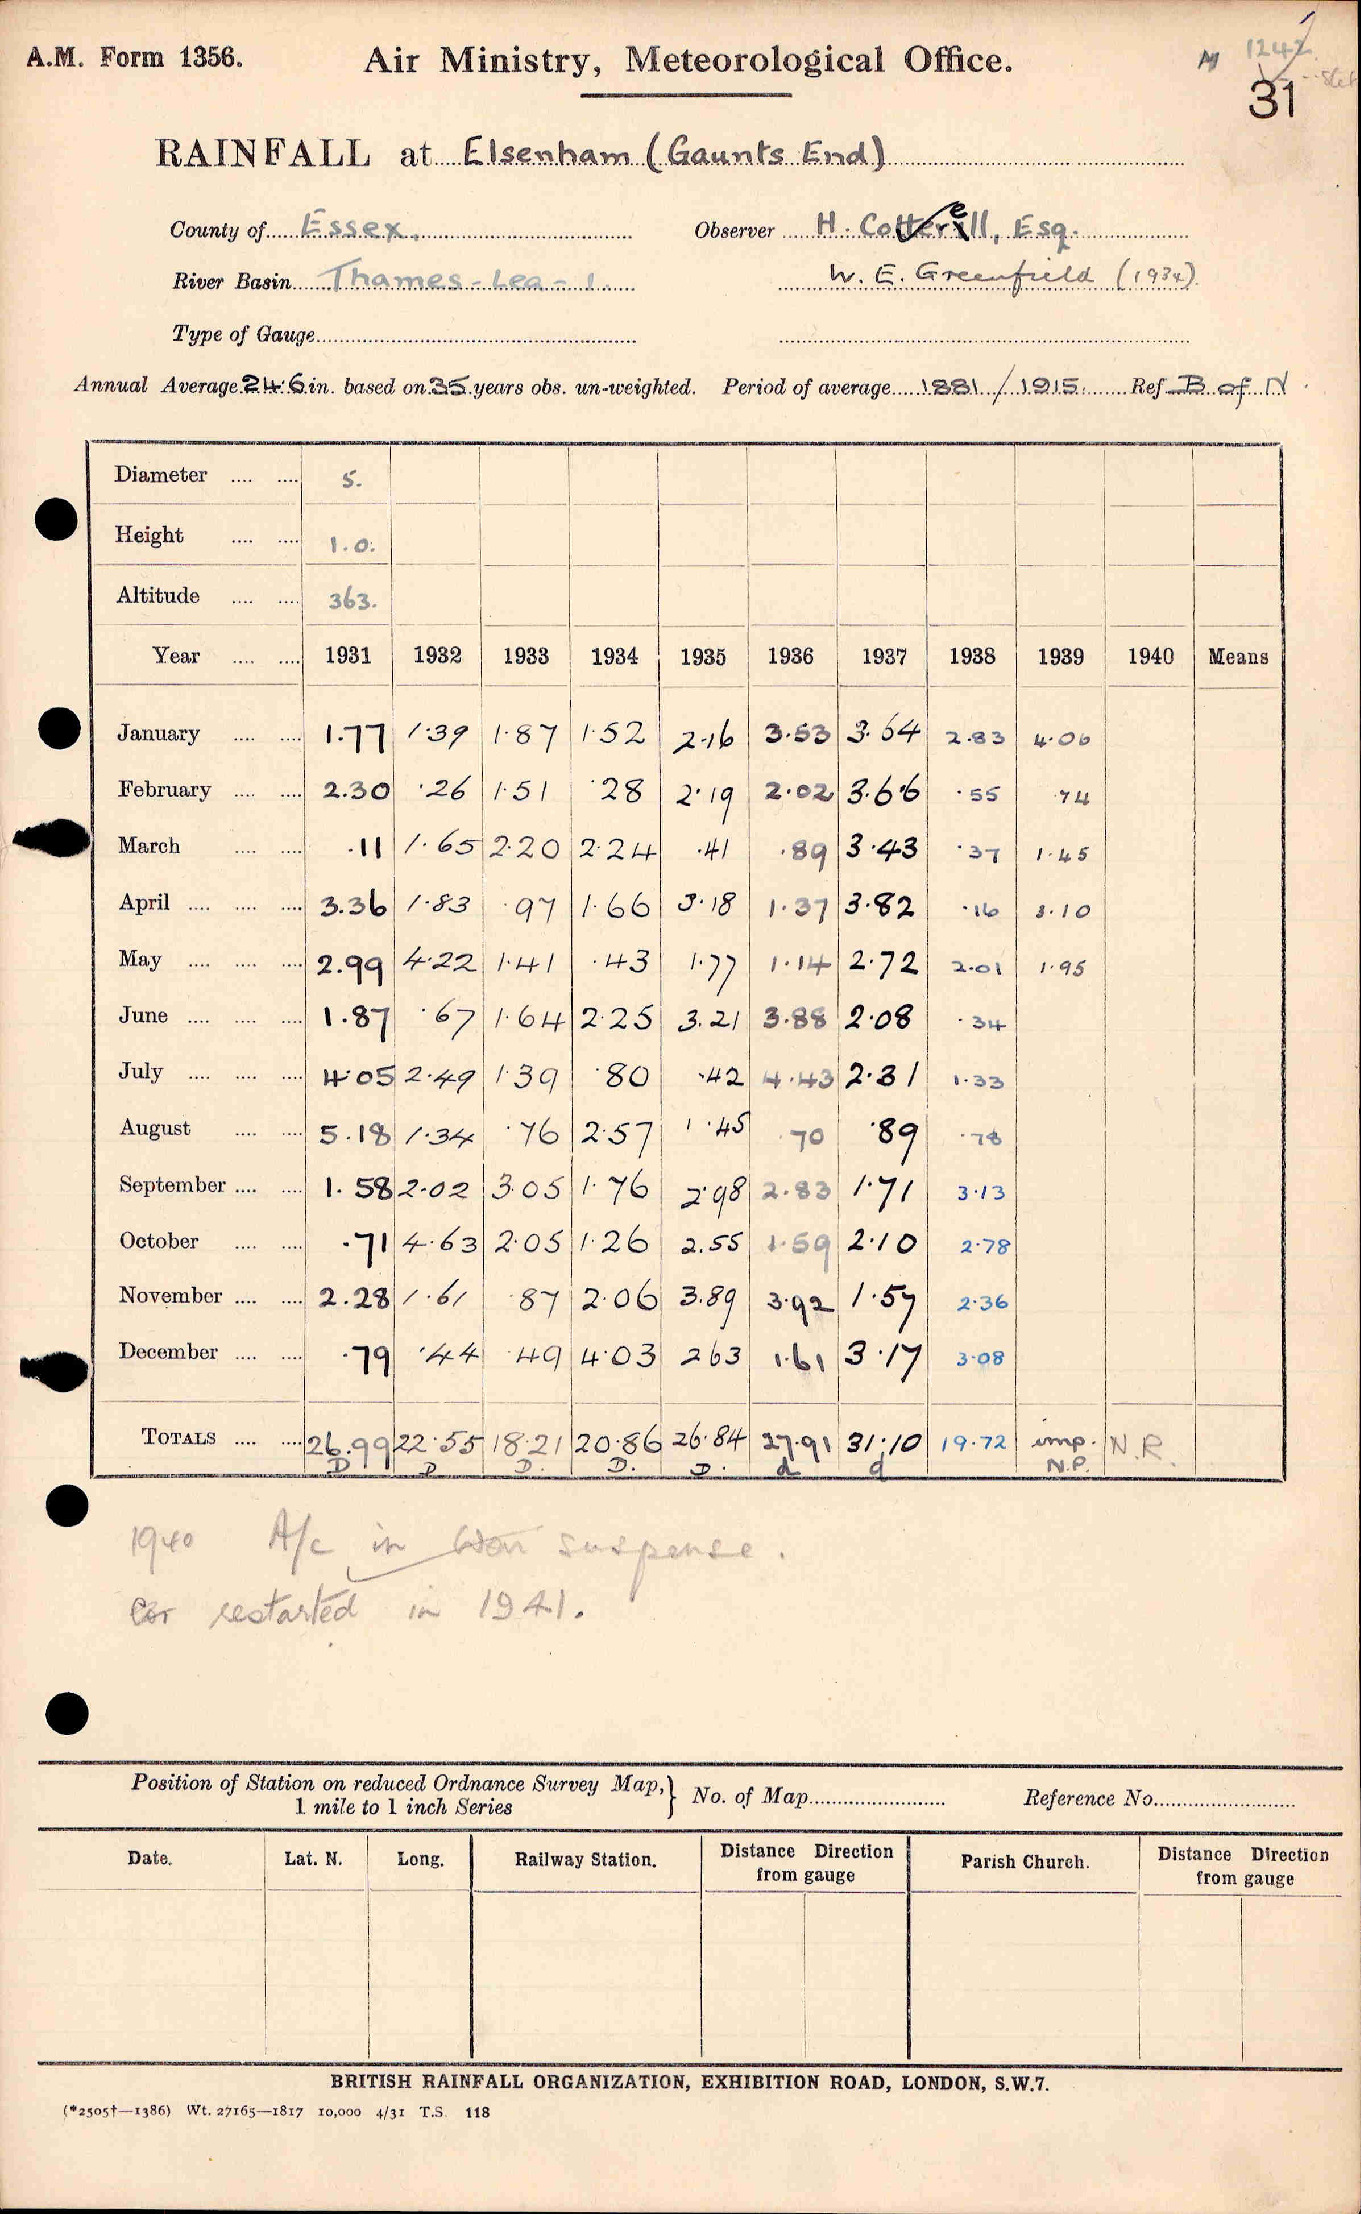 A.M. Form 1356.
Air Ministry, Meteorological Office.
M 1242
31
RAINFALL at Elsenham (Gaunts End)
County of Essex. Observer H. Cotterell, Esq.
River Basin Thames - Lea - 1. W. E. Greenfield (1934)
Type of Gauge
Annual Average 24.6 in. based on 35 years obs. un-weighted. Period of average 1881 / 1915. Ref B of N.
Diameter .... .... 5.
Height .... .... 1.0.
Altitude .... .... 363.
Year .... .... 1931 1932 1933 1934 1935 1936 1937 1938 1939 1940 Means
January .... .... 1.77 1.39 1.87 1.52 2.16 3.53 3.64 2.83 4.06
February .... .... 2.30 .26 1.51 .28 2.19 2.02 3.66 .55 .74
March .... .... .11 1.65 2.20 2.24 .41 .89 3.43 .37 1.45
April .... .... .... 3.36 1.83 .97 1.66 3.18 1.37 3.82 .16 3.10
May .... .... .... 2.99 4.22 1.41 .43 1.77 1.14 2.72 2.01 1.95
June .... .... .... 1.87 .67 1.64 2.25 3.21 3.88 2.08 .34
July .... .... .... 4.05 2.49 1.39 .80 .42 4.43 2.31 1.33
August .... .... 5.18 1.34 .76 2.57 1.45 .70 .89 .78
September .... .... 1.58 2.02 3.05 1.76 2.98 2.83 1.71 3.13
October .... .... .71 4.63 2.05 1.26 2.55 1.59 2.10 2.78
November .... .... 2.28 1.61 .87 2.06 3.89 3.92 1.57 2.36
December .... .... .79 .44 .49 4.03 2 63 1.61 3.17 3.08
TOTALS .... .... 26.99 22.55 18.21 20.86 26.84 27.91 31.10 19.72 imp. N.R.
D D D. D. D. d d N.P.
1940 A/c in War suspense.
restarted in 1941.
Position of Station on reduced Ordnance Survey Map, } No. of Map Reference No.
1 mile to 1 inch Series
Date. Lat. N. Long. Railway Station. Distance Direction from gauge Parish Church. Distance Direction from gauge
BRITISH RAINFALL ORGANIZATION, EXHIBITION ROAD, LONDON, S.W.7.
(*2505†—1386) Wt. 27165—1817 10,000 4/31 T.S. 118